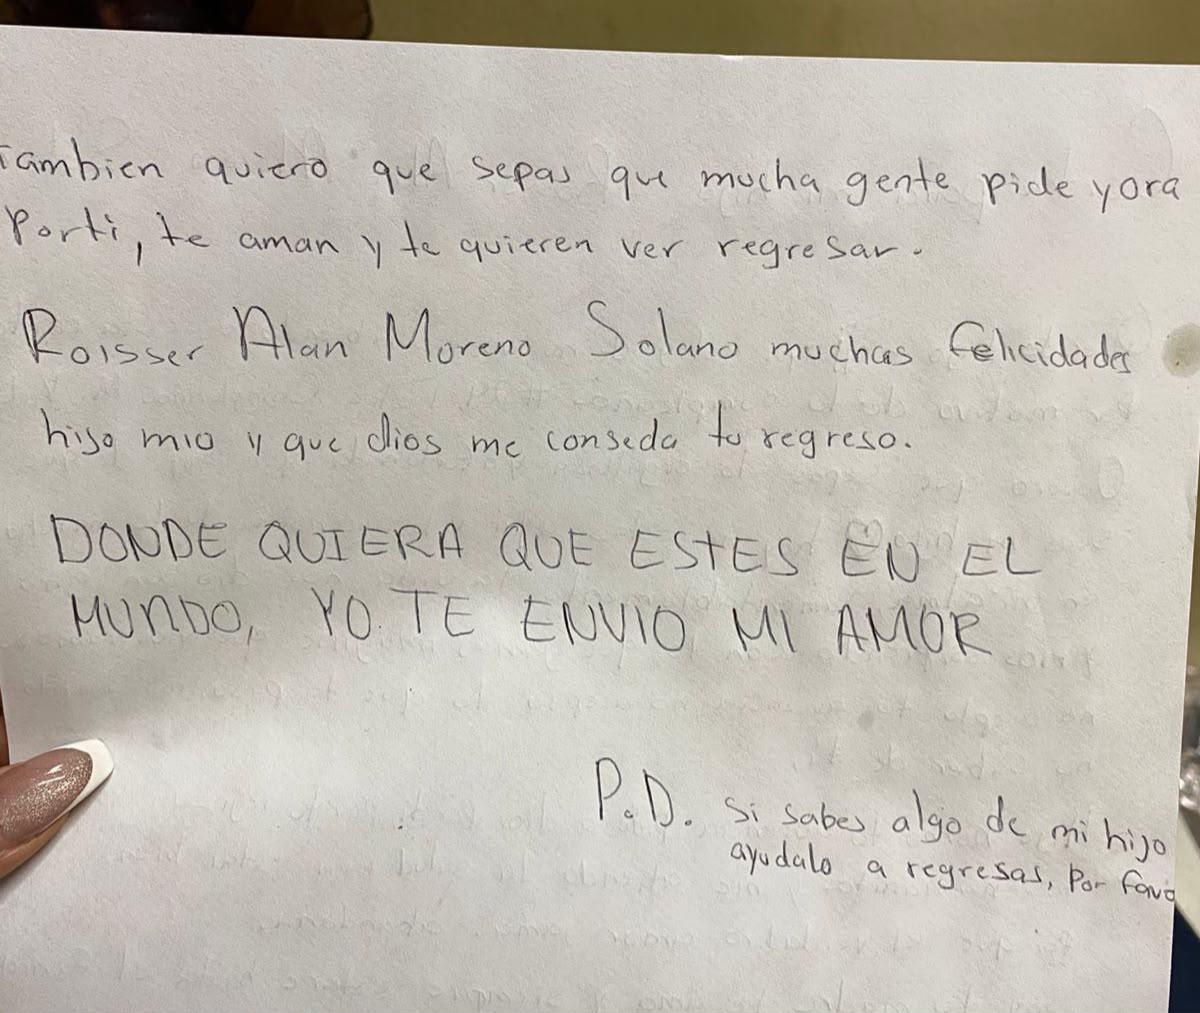 Tambien quiero que sepas que mucha gente pide y ora
Porti, te aman y te quieren ver regresar.
Roisser Alan Moreno Solano muchas felicidades
hijo mio y que dios me conseda tu regreso.
DONDE QUIERA QUE ESTES EN EL
MUNDO, YO TE ENVIO MI AMOR
P.D. si sabes algo de mi hijo
ayudalo a regresas, por favo